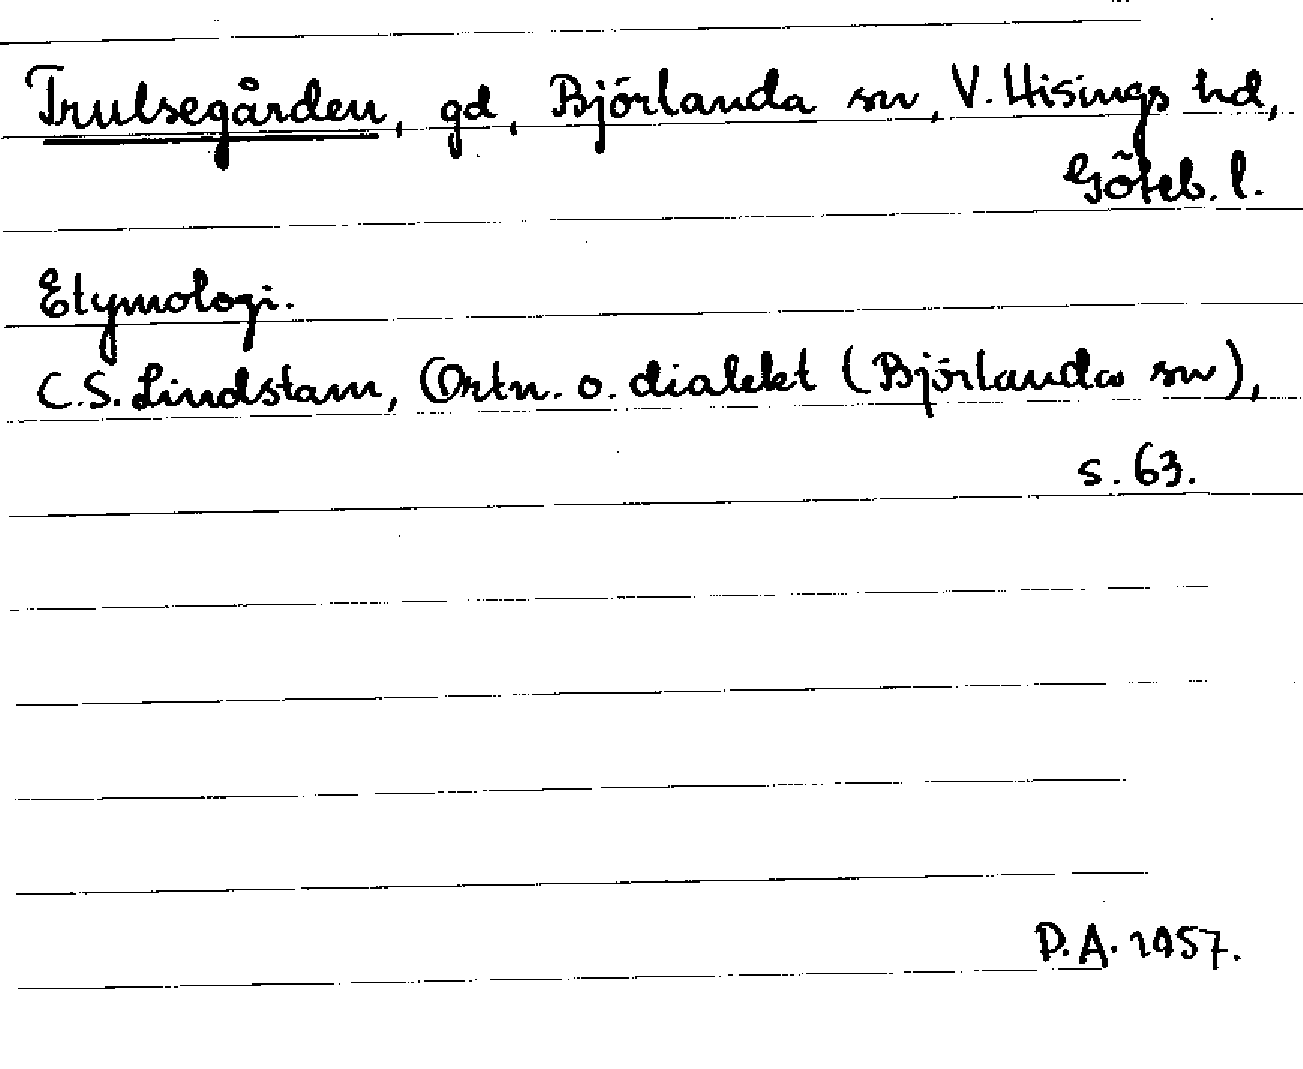 Trulsegården, gd, Björlanda sn, V. Hisings hd,
Göteb. l.
Etymologi.
C.S. Lindstam, Ortn. o. dialekt (Björlanda sn),
s. 63.
D.A. 1957.